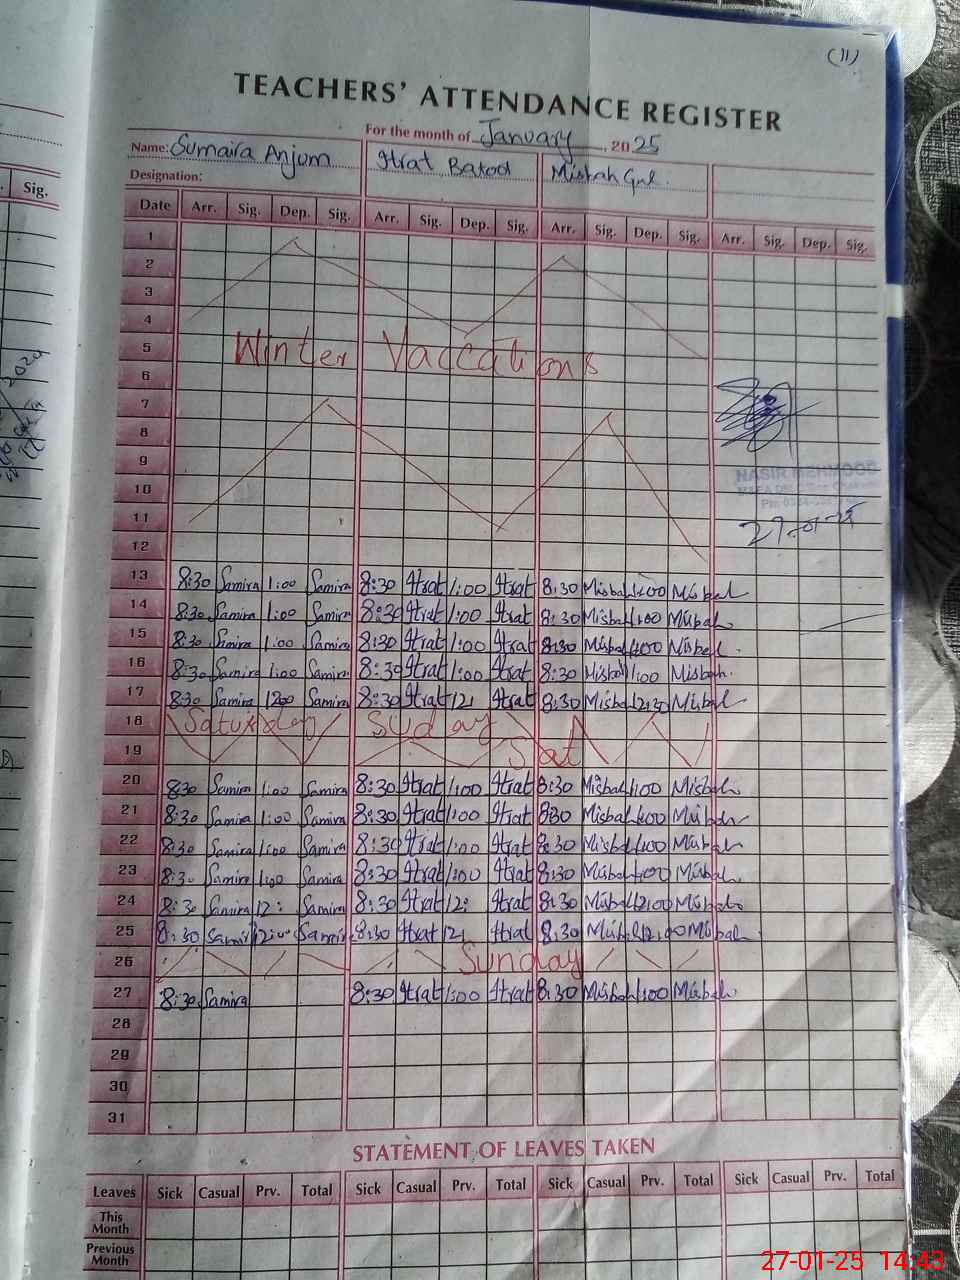 (11)
TEACHERS' ATTENDANCE REGISTER
For the month of January, 2025
Name: Sumaira Anjum Itrat Batool Misbah Gul.
Designation:
Sig.
Date Arr. Sig. Dep. Sig. Arr. Sig. Dep. Sig. Arr. Sig. Dep. Sig. Arr. Sig. Dep. Sig.
1
2
3
4
5 Winter Vaccations
6
7
8
9
10 NASIR MEHMOOD
11 27-01-25
12
13 8:30 Samira 1:00 Samira 8:30 Itrat 1:00 Itrat 8:30 Misbah 1:00 Misbah
14 8:30 Samira 1:00 Samira 8:30 Itrat 1:00 Itrat 8:30 Misbah 1:00 Misbah
15 8:30 Samira 1:00 Samira 8:30 Itrat 1:00 Itrat 8:30 Misbah 1:00 Misbah
16 8:30 Samira 1:00 Samira 8:30 Itrat 1:00 Itrat 8:30 Misbah 1:00 Misbah
17 8:30 Samira 1200 Samira 8:30 Itrat 12: Itrat 8:30 Misbah 12:30 Misbah
18 Saturday Suday
19 Sat
20 8:30 Samira 1:00 Samira 8:30 Itrat 1:00 Itrat 8:30 Misbah 1:00 Misbah
21 8:30 Samira 1:00 Samira 8:30 Itrat 1:00 Itrat 8:30 Misbah 1:00 Misbah
22 8:30 Samira 1:00 Samira 8:30 Itrat 1:00 Itrat 8:30 Misbah 1:00 Misbah
23 8:30 Samira 1:00 Samira 8:30 Itrat 1:00 Itrat 8:30 Misbah 1:00 Misbah
24 8:30 Samira 12: Samira 8:30 Itrat 12: Itrat 8:30 Misbah 12:00 Misbah
25 8:30 Samira 12:00 Samira 8:30 Itrat 12 Itrat 8:30 Misbah 12:00 Misbah
26 Sunday
27 8:30 Samira 8:30 Itrat 1:00 Itrat 8:30 Misbah 1:00 Misbah
28
29
30
31
STATEMENT OF LEAVES TAKEN
Leaves Sick Casual Prv. Total Sick Casual Prv. Total Sick Casual Prv. Total Sick Casual Prv. Total
This
Month
Previous
Month
27-01-25 14:43